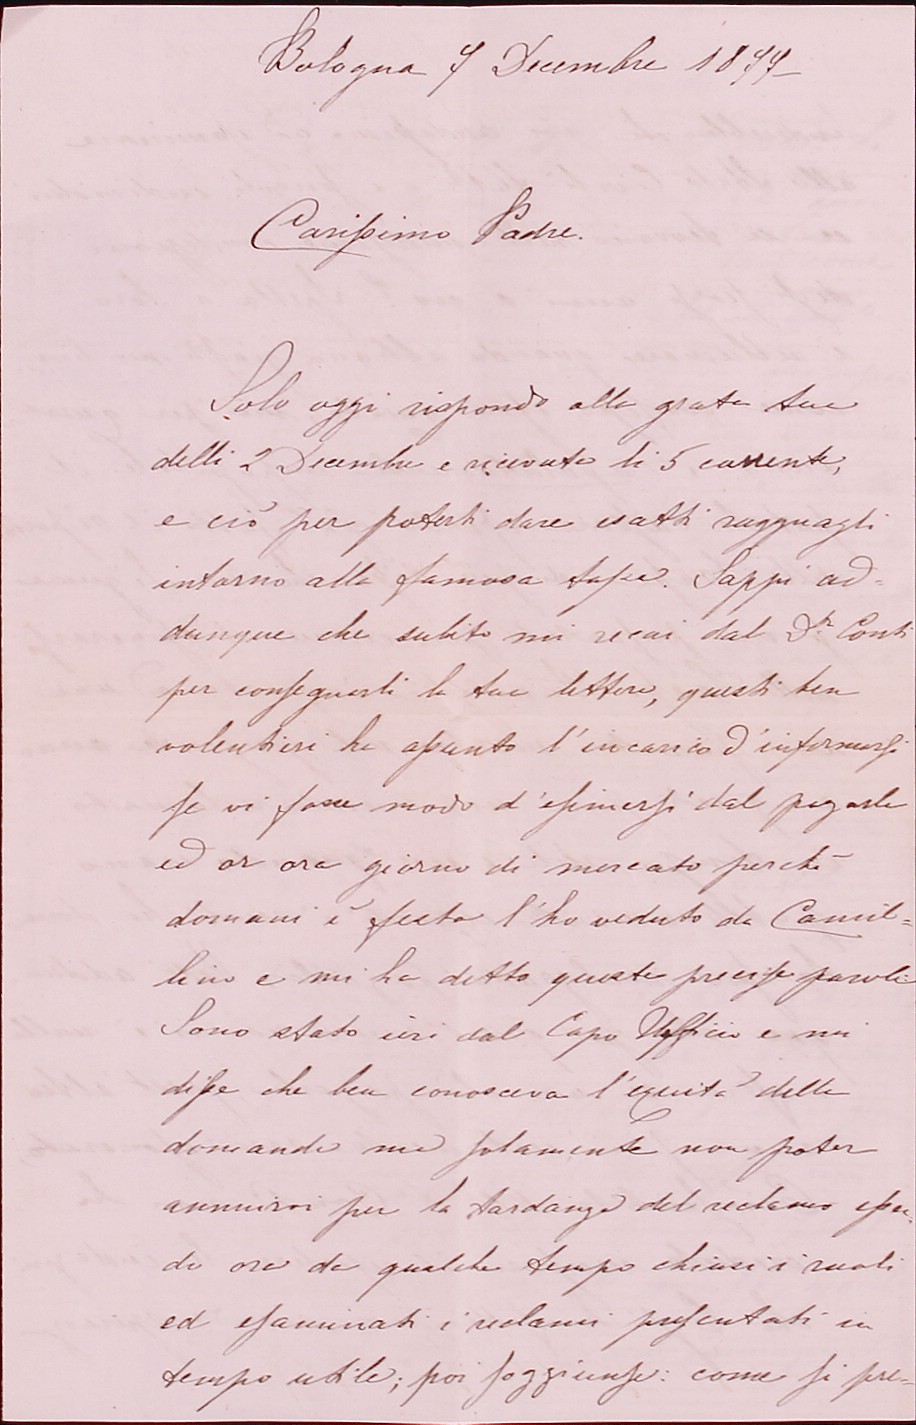 Bologna 7 Decembre 1877
Carissimo Padre.
Solo oggi rispondo alla grata tua
delli 2 Decembre e ricevuta li 5 corrente,
e ciò per poterti dare esatti ragguagli
intorno alla famosa tassa. Sappi ad=
dunque che subito mi recai dal Dr. Conti
per consegnarli la tua lettera, questi ben
volentieri ha assunto l'incarico d'informarsi
se vi fosse modo d'esimersi dal pagarla
ed or ora giorno di mercato perchè
domani è festa l'ho veduto da Camil=
lino e mi ha detto queste precise parole:
Sono stato ieri dal Capo Ufficio e mi
disse che ben conosceva l'equità della
domanda ma solamente non poter
annuirvi per la tardanza del reclamo essen=
do ora da qualche tempo chiusi i ruoli
ed esaminati i reclami presentati in
tempo utile; poi soggiunse: come si pre=